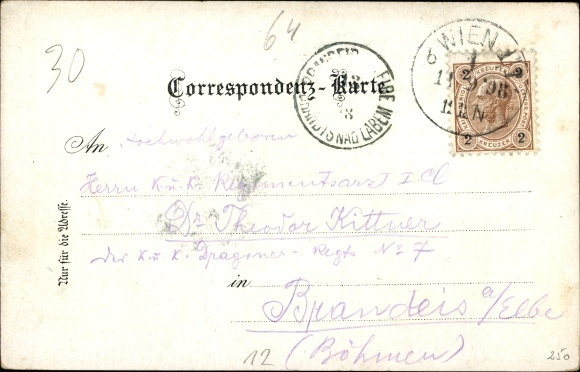 64
30
WIEN
98
2 KREUZER 2
2 KREUZER 2
BRANDEIS ELBE
BRANDÝS NAD LABEM
Correspondenz-Karte.
An Hochwohlgeboren
Herrn K. u. K. Regimentsarzt I Cl
Dr Theodor Kittner
des K. u. K. Dragoner-Regts No 7
in
Brandeis a/Elbe
(Böhmen)
Nur für die Adresse.
12
250